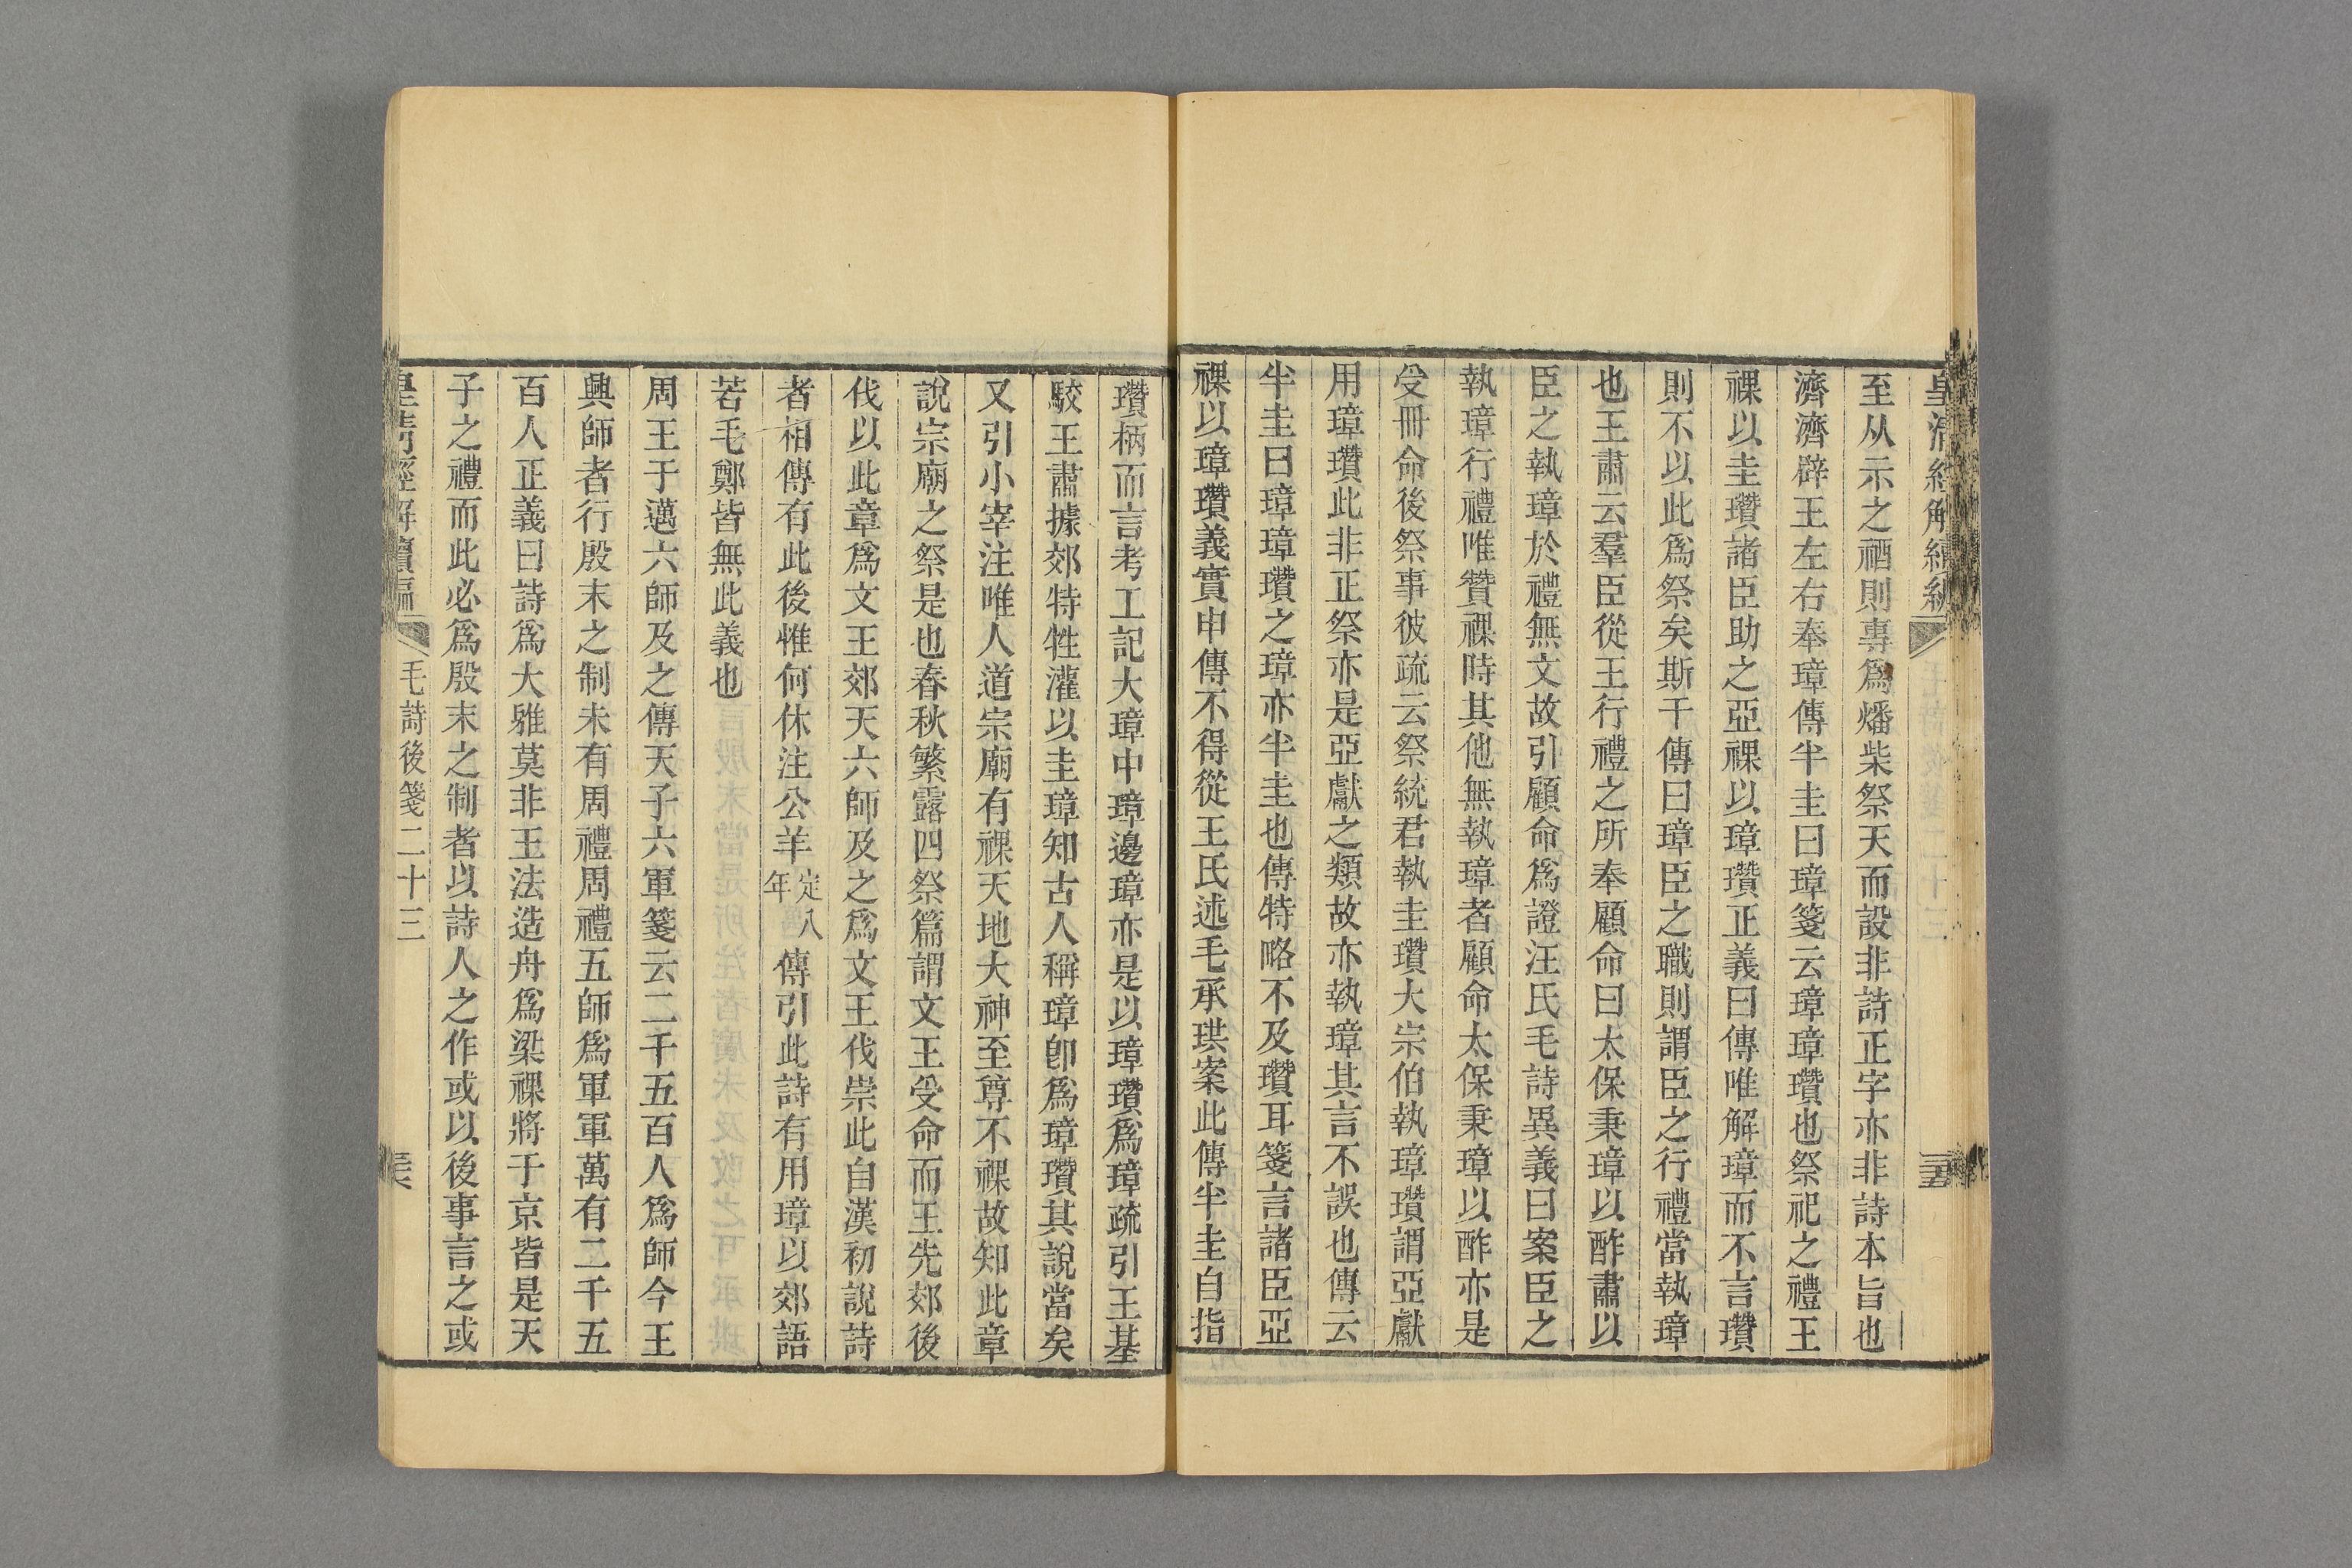 皇清經解續編
至从示之禉則專爲燔柴祭天而設非詩正字亦非詩本旨也
濟濟辟王左右奉璋傳半圭曰璋箋云璋璋瓚也祭祀之禮王
祼以圭瓚諸臣助之亞祼以璋瓚正義曰傳唯解璋而不言瓚
則不以此爲祭矣斯干傳曰璋臣之職則謂臣之行禮當執璋
也王肅云羣臣從王行禮之所奉顧命曰太保秉璋以酢肅以
臣之執璋於禮無文故引顧命爲證汪氏毛詩異義曰案臣之
執璋行禮唯贊祼時其他無執璋者顧命太保秉璋以酢亦是
受冊命後祭事彼疏云祭統君執圭瓚大宗伯執璋瓚謂亞獻
用璋瓚此非正祭亦是亞獻之類故亦執璋其言不誤也傳云
半圭曰璋璋瓚之璋亦半圭也傳特略不及瓚耳箋言諸臣亞
祼以璋瓚義實申傳不得從王氏述毛承珙案此傳半圭自指
瓚柄而言考工記大璋中璋邊璋亦是以璋瓚爲璋疏引王基
駮王肅據郊特牲灌以圭璋知古人稱璋卽爲璋瓚其說當矣
又引小宰注唯人道宗廟有祼天地大神至尊不祼故知此章
說宗廟之祭是也春秋繁露四祭篇謂文王受命而王先郊後
伐以此章爲文王郊天六師及之爲文王伐崇此自漢初說詩
者相傳有此後惟何休注公羊定八年傳引此詩有用璋以郊語
若毛鄭皆無此義也
周王于邁六師及之傳天子六軍箋云二千五百人爲師今王
興師者行殷末之制未有周禮周禮五師爲軍軍萬有二千五
百人正義曰詩爲大雅莫非王法造舟爲梁祼將于京皆是天
子之禮而此必爲殷末之制者以詩人之作或以後事言之或
皇清經解續編 毛詩後箋二十三